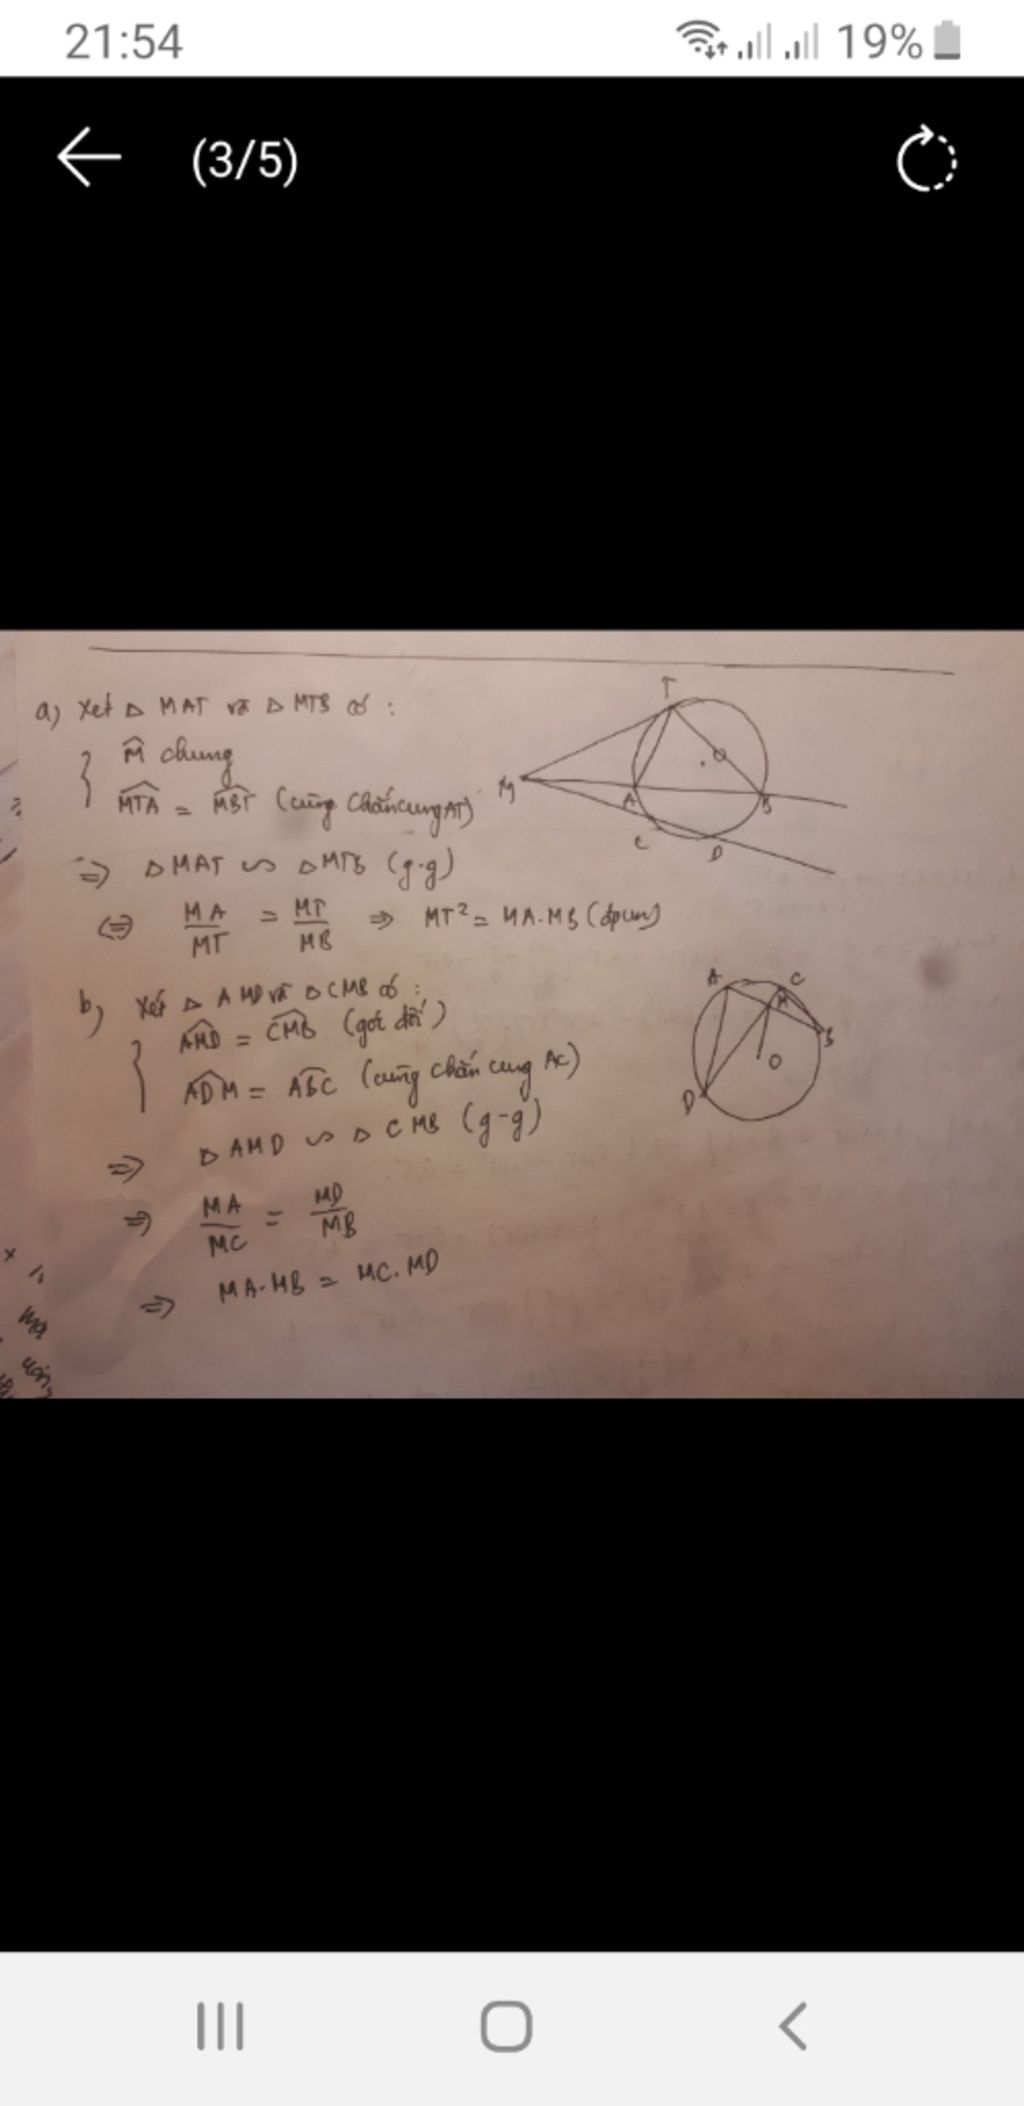 21:54
19%
(3/5)
a) Xét △ MAT và △ MTB có :
M̂ chung
MTA = MBT (cùng chắn cung AT)
⇒ △MAT ∽ △MTB (g.g)
⇔ MA/MT = MT/MB ⇒ MT² = MA.MB (đpcm)
T
O
M
A
B
C
D
b) Xét △ AMD và △CMB có :
AMD = CMB (góc đối)
ADM = ABC (cùng chắn cung AC)
⇒ △AMD ∽ △CMB (g-g)
⇒ MA/MC = MD/MB
⇒ MA.MB = MC.MD
A
C
M
B
O
D